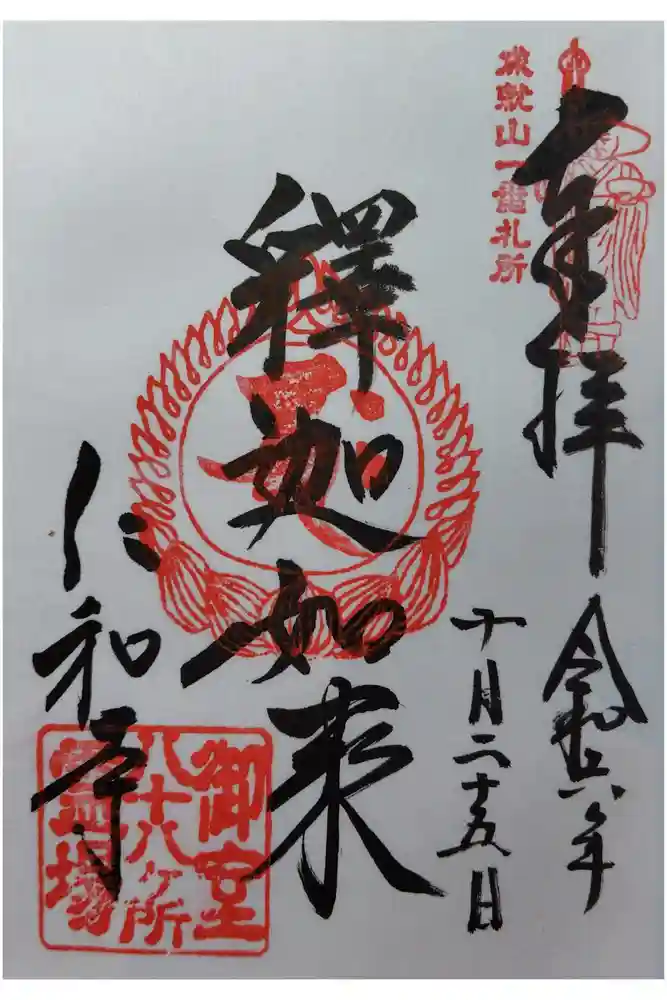 成就山一番札所
奉拝
令和六年
十月二十五日
釋迦如来
仁和寺
御室
八十八ヶ所
霊場